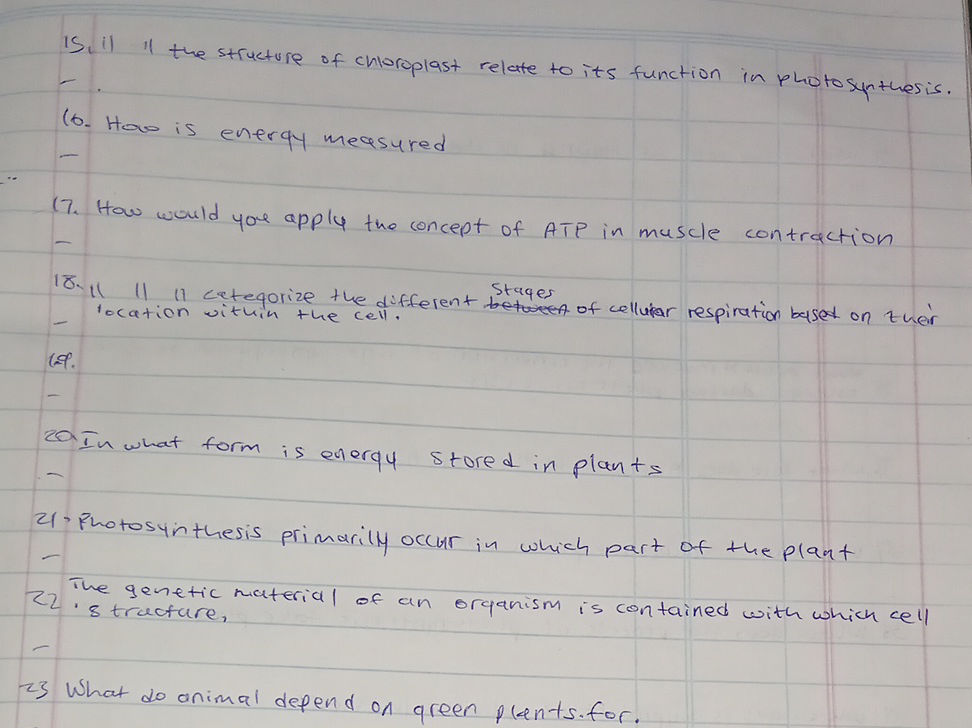 15. 11 11 the structure of chloroplast relate to its function in photosynthesis.
-
16. How is energy measured
-
17. How would you apply the concept of ATP in muscle contraction
-
Stages
18. 11 11 11 categorize the different between of cellular respiration based on their
location within the cell.
-
19.
-
20 In what form is energy stored in plants
-
21. Photosynthesis primarily occur in which part of the plant
-
The genetic material of an organism is contained with which cell
22. structure,
-
23 What do animal depend on green plants.for.